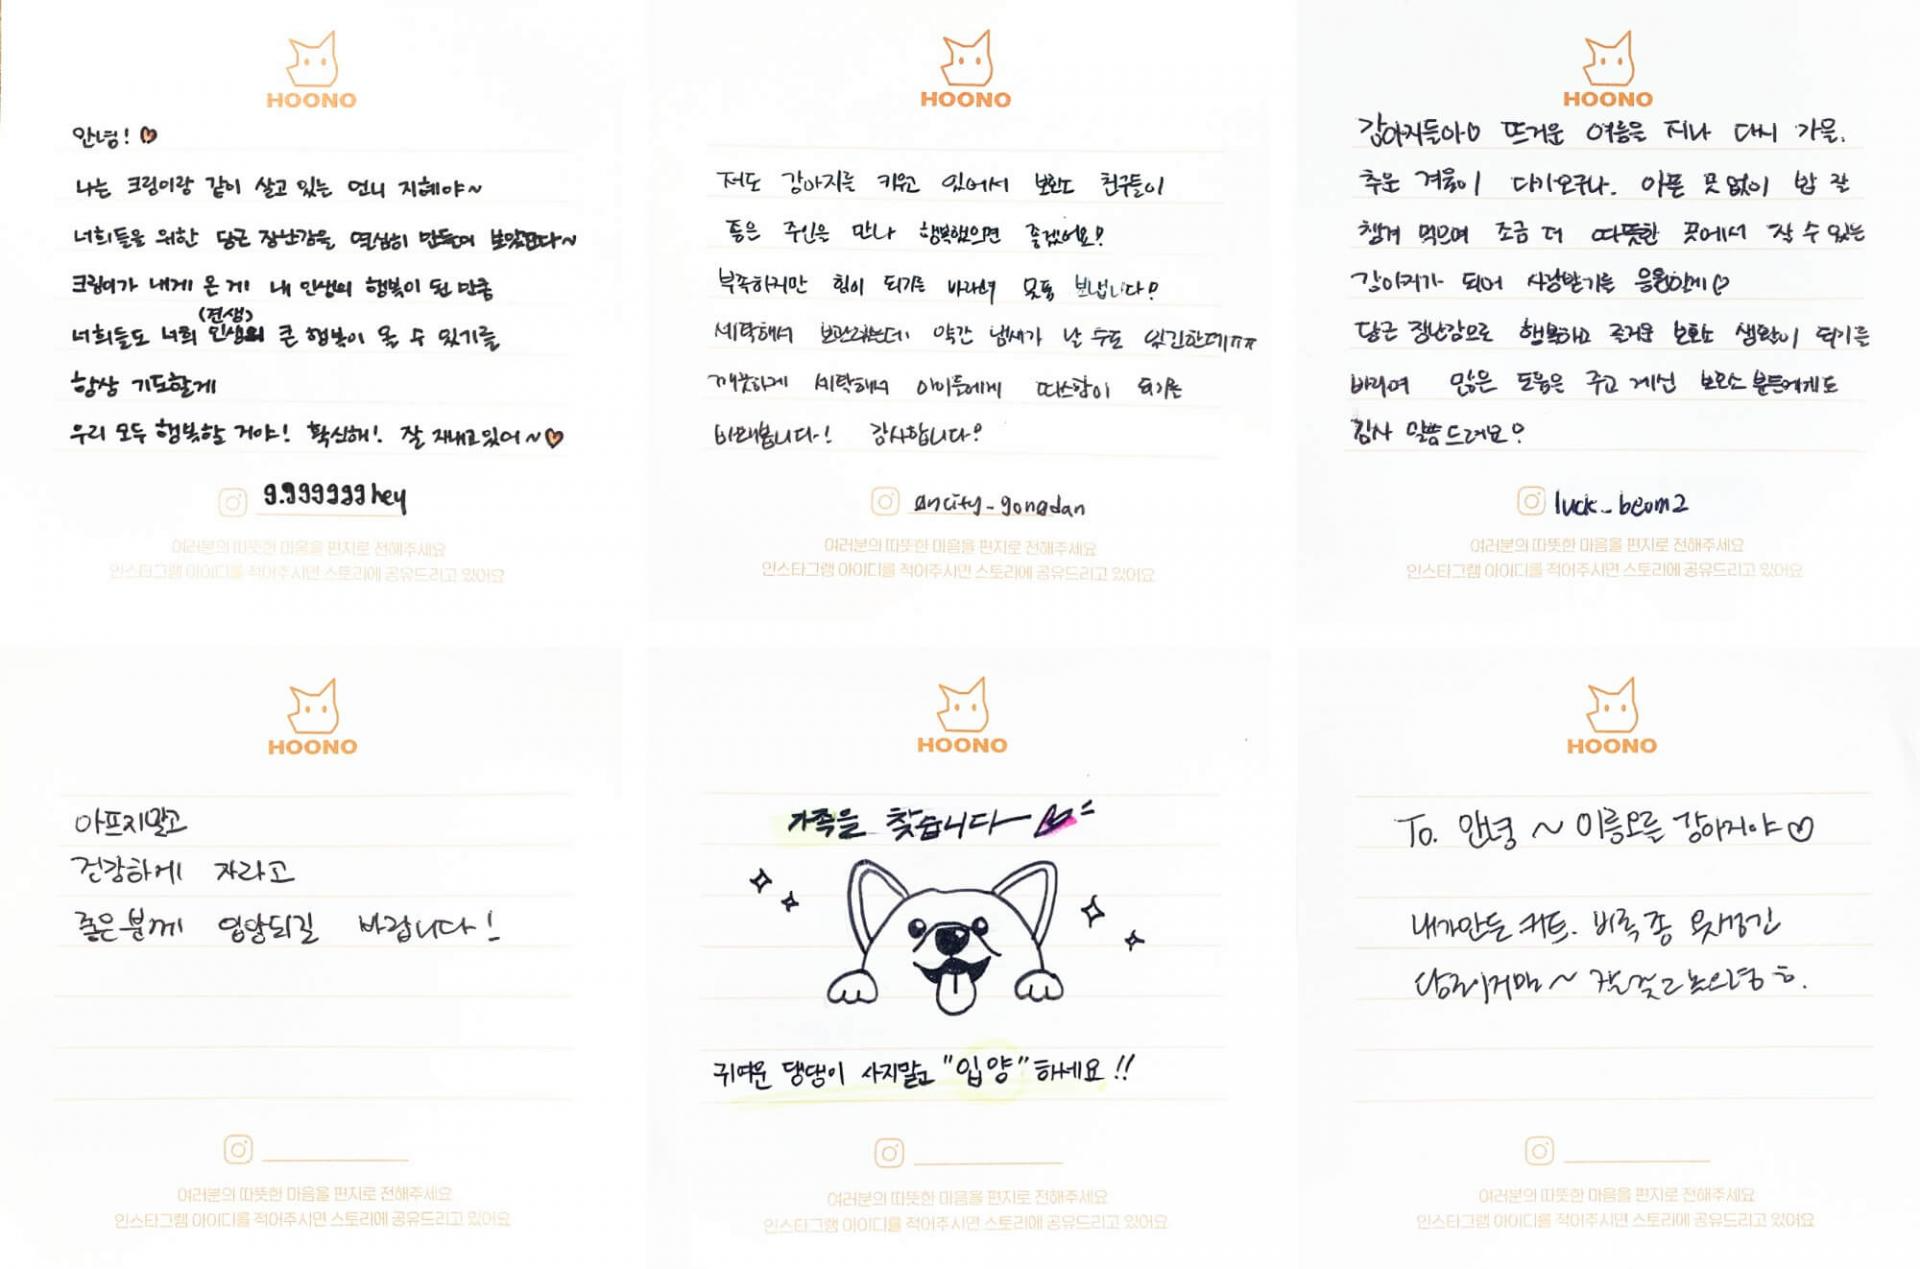 HOONO
안녕! ♡
나는 크림이랑 같이 살고 있는 언니 지혜야~
너희들을 위한 당근 장난감을 열심히 만들어 보았단다~
크림이가 내게 온 게 내 인생의 행복이 된 만큼
(견생)
너희들도 너희 인생의 큰 행복이 올 수 있기를
항상 기도할게
우리 모두 행복할 거야! 확신해! 잘 지내고있어~♡
9.999999hey
여러분의 따뜻한 마음을 편지로 전해주세요
인스타그램 아이디를 적어주시면 스토리에 공유드리고 있어요
HOONO
저도 강아지를 키우고 있어서 보호소 친구들이
좋은 주인을 만나 행복했으면 좋겠어요!
부족하지만 힘이 되기를 바라며 물품 보냅니다!
세탁해서 보관했는데 약간 냄새가 날 수도 있긴한데ㅠㅠ
깨끗하게 세탁해서 아이들에게 따스함이 되기를
바래봅니다! 감사합니다!
ancity_gongdan
여러분의 따뜻한 마음을 편지로 전해주세요
인스타그램 아이디를 적어주시면 스토리에 공유드리고 있어요
HOONO
강아지들아♡ 뜨거운 여름을 지나 다시 가을,
추운 겨울이 다가오구나. 아픈 곳 없이 밥 잘
챙겨 먹으며 조금 더 따뜻한 곳에서 잘 수 있는
강아지가 되어 사랑받기를 응원할게♡
당근 장난감으로 행복하고 즐거운 보호소 생활이 되기를
바라며 많은 도움을 주고 계신 보호소 분들에게도
감사 말씀드려요!
luck_beom2
여러분의 따뜻한 마음을 편지로 전해주세요
인스타그램 아이디를 적어주시면 스토리에 공유드리고 있어요
HOONO
아프지말고
건강하게 자라고
좋은분께 입양되길 바랍니다!
여러분의 따뜻한 마음을 편지로 전해주세요
인스타그램 아이디를 적어주시면 스토리에 공유드리고 있어요
HOONO
가족을 찾습니다
귀여운 댕댕이 사지말고 "입양"하세요!!
여러분의 따뜻한 마음을 편지로 전해주세요
인스타그램 아이디를 적어주시면 스토리에 공유드리고 있어요
HOONO
To. 안녕~ 이름모를 강아지야♡
내가만든 키트. 비록 좀 못생긴
여러분의 따뜻한 마음을 편지로 전해주세요
인스타그램 아이디를 적어주시면 스토리에 공유드리고 있어요